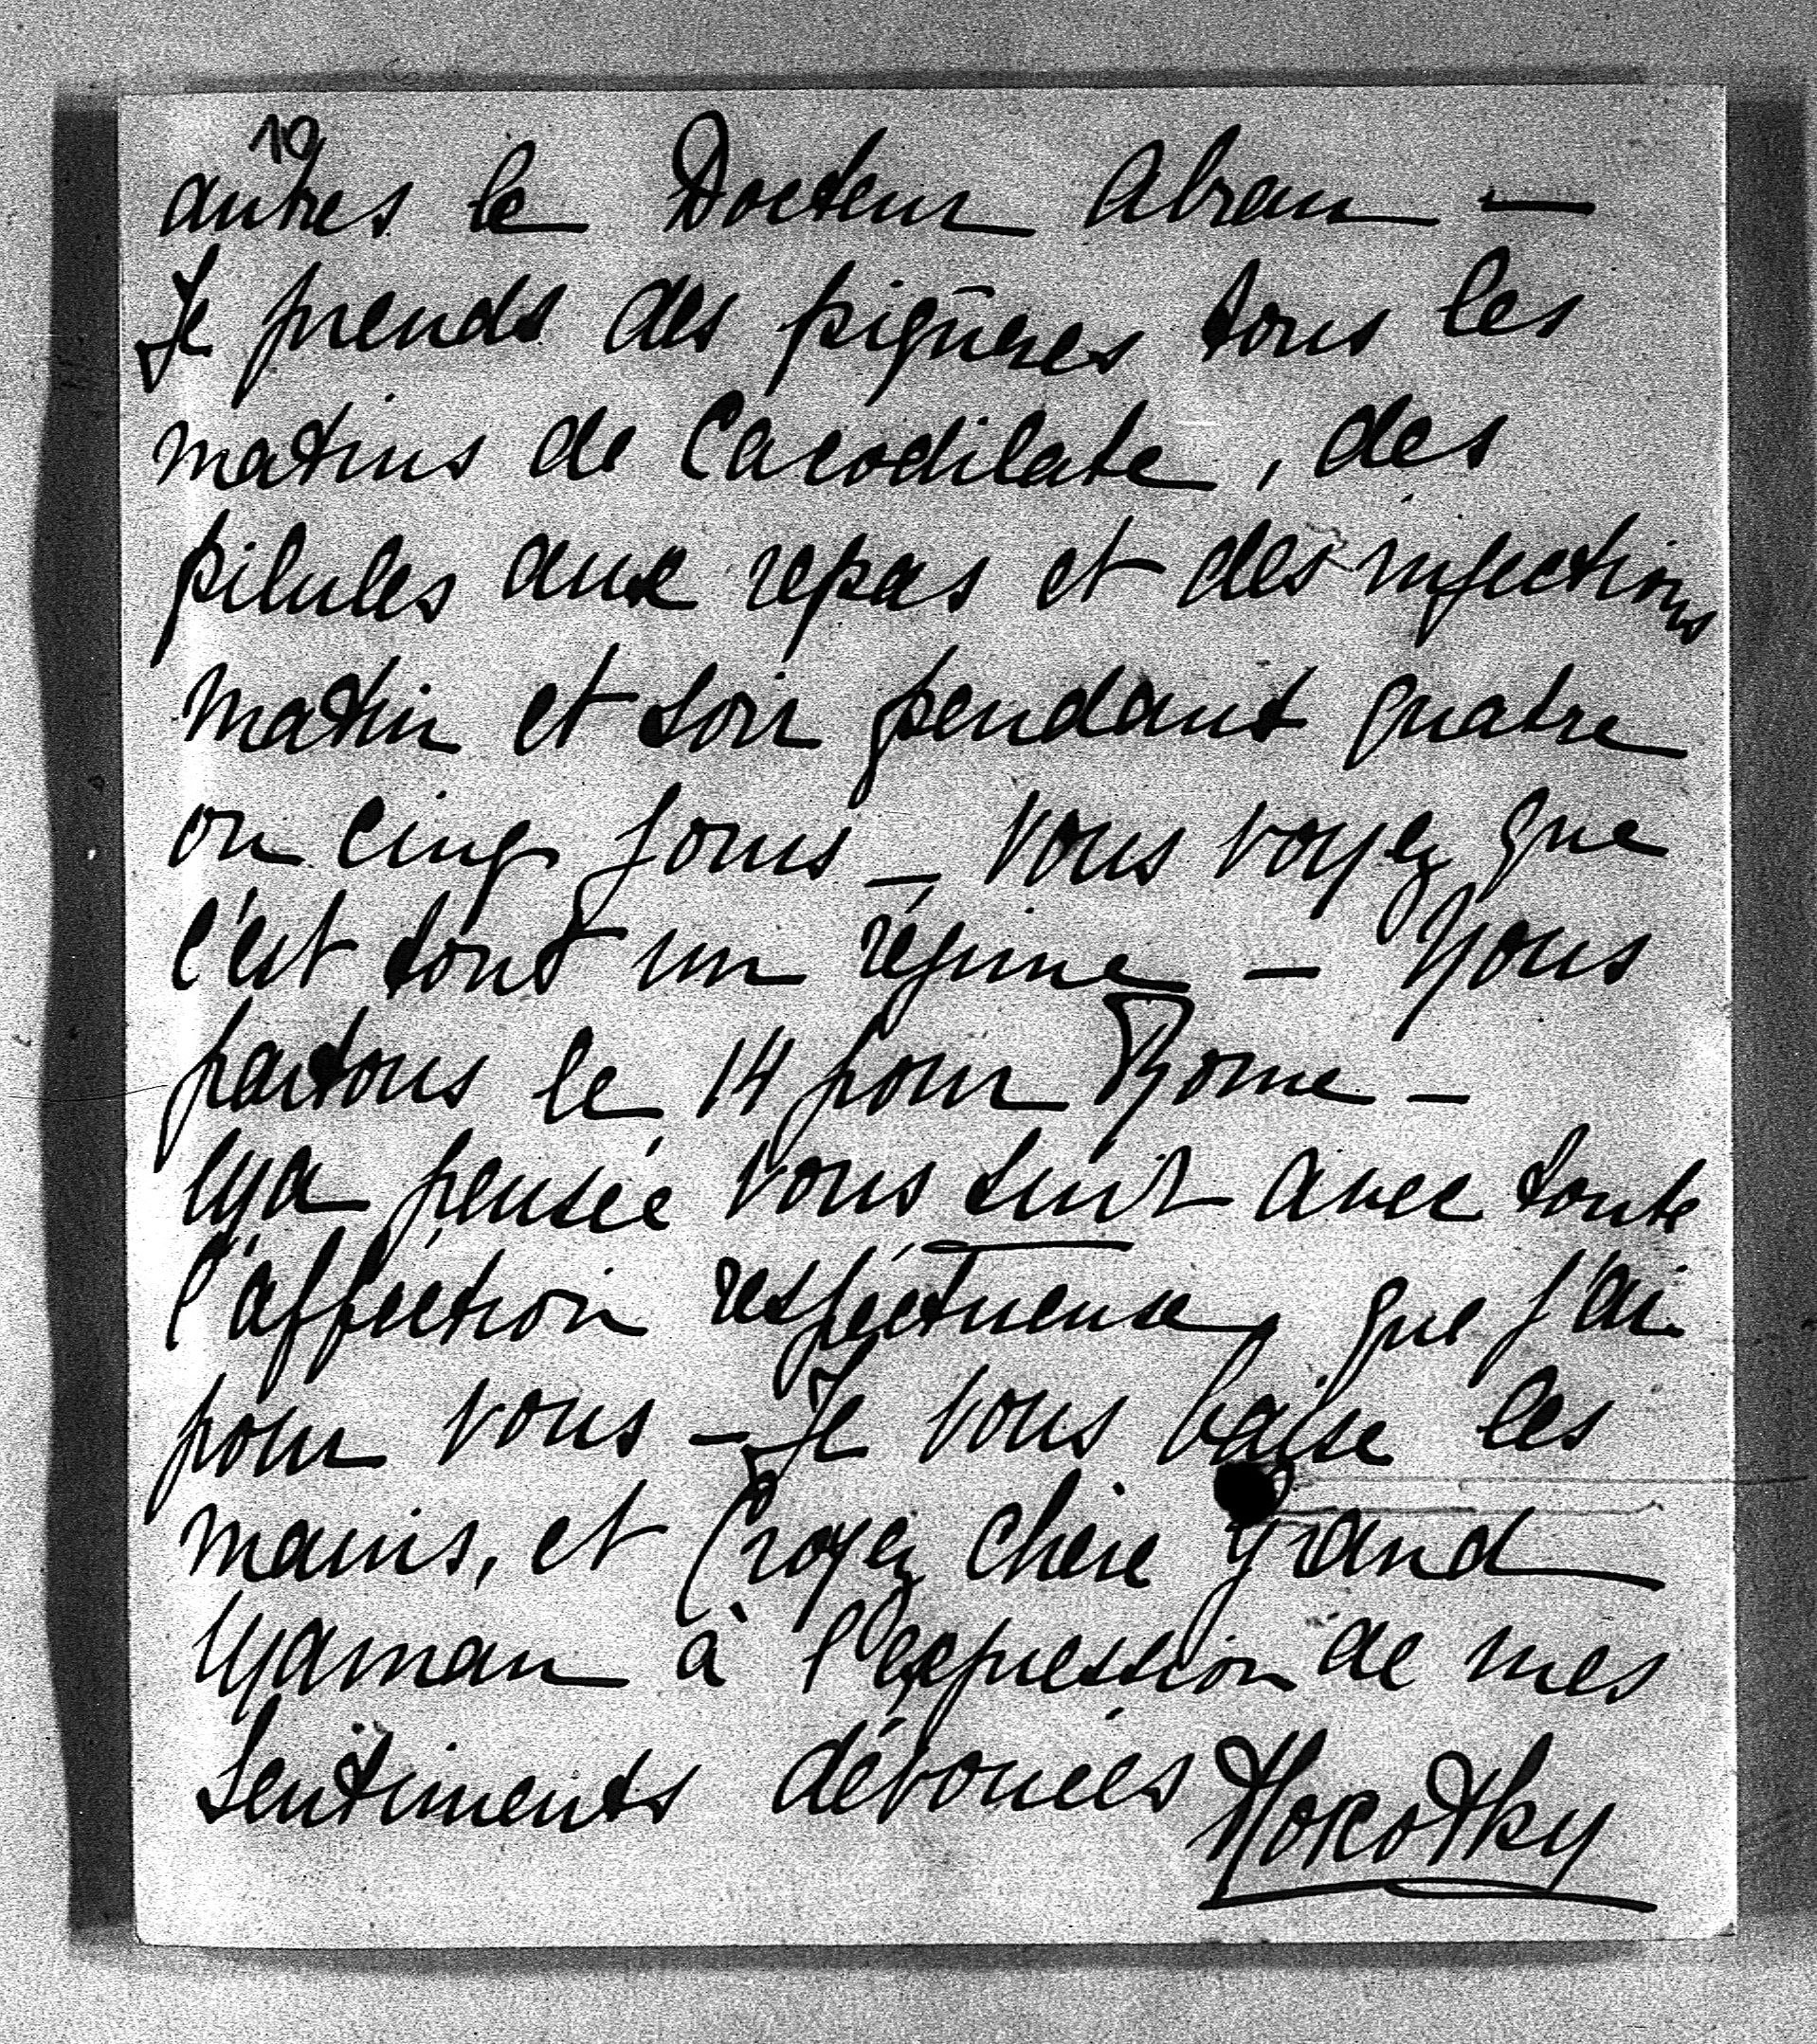 10
autres le Docteur Abram —
Je prends des piqures tous les
matins de Cacodilate, des
pilules aux repas et des injections
matin et soir pendant quatre
ou cinq jours — Vous voyez que
c'est tout un régime — Nous
partons le 14 pour Rome —
Ma pensée vous suit avec toute
l'affection respectueuse, que j'ai
pour vous — Je vous baise les
mains, et Croyez chère Grand
Maman à l'expression de mes
Sentiments dévoués